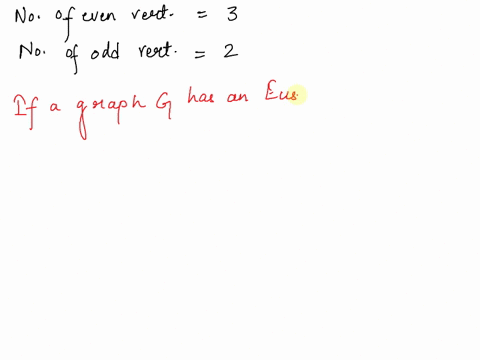 No. of even vert. = 3
No. of odd vert. = 2
If a graph G has an Eus